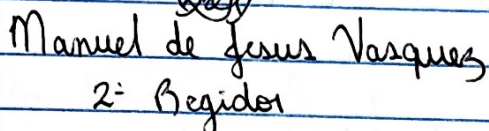 Manuel de Jesus Vasquez
2º Regidor